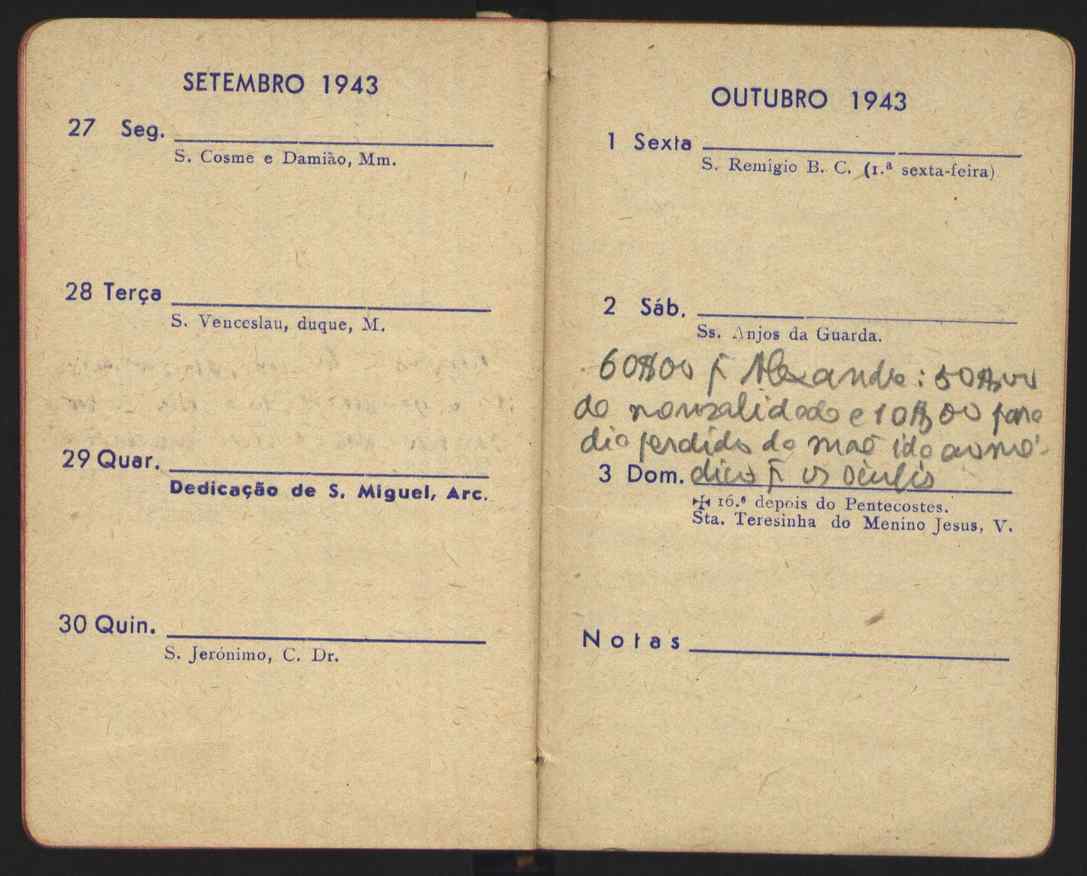 SETEMBRO 1943
27 Seg.
S. Cosme e Damião, Mm.
28 Terça
S. Venceslau, duque, M.
29 Quar.
Dedicação de S. Miguel, Arc.
30 Quin.
S. Jerónimo, C. Dr.
OUTUBRO 1943
1 Sexta
S. Remigio B. C. (1.ª sexta-feira)
2 Sáb.
Ss. Anjos da Guarda.
60$00 p Alexandre: 50$00
de mensalidade e 10$00 para
dia perdido da mãe ida ao mé-
3 Dom. dico p os óculos
✠ 16.º depois do Pentecostes.
Sta. Teresinha do Menino Jesus, V.
Notas